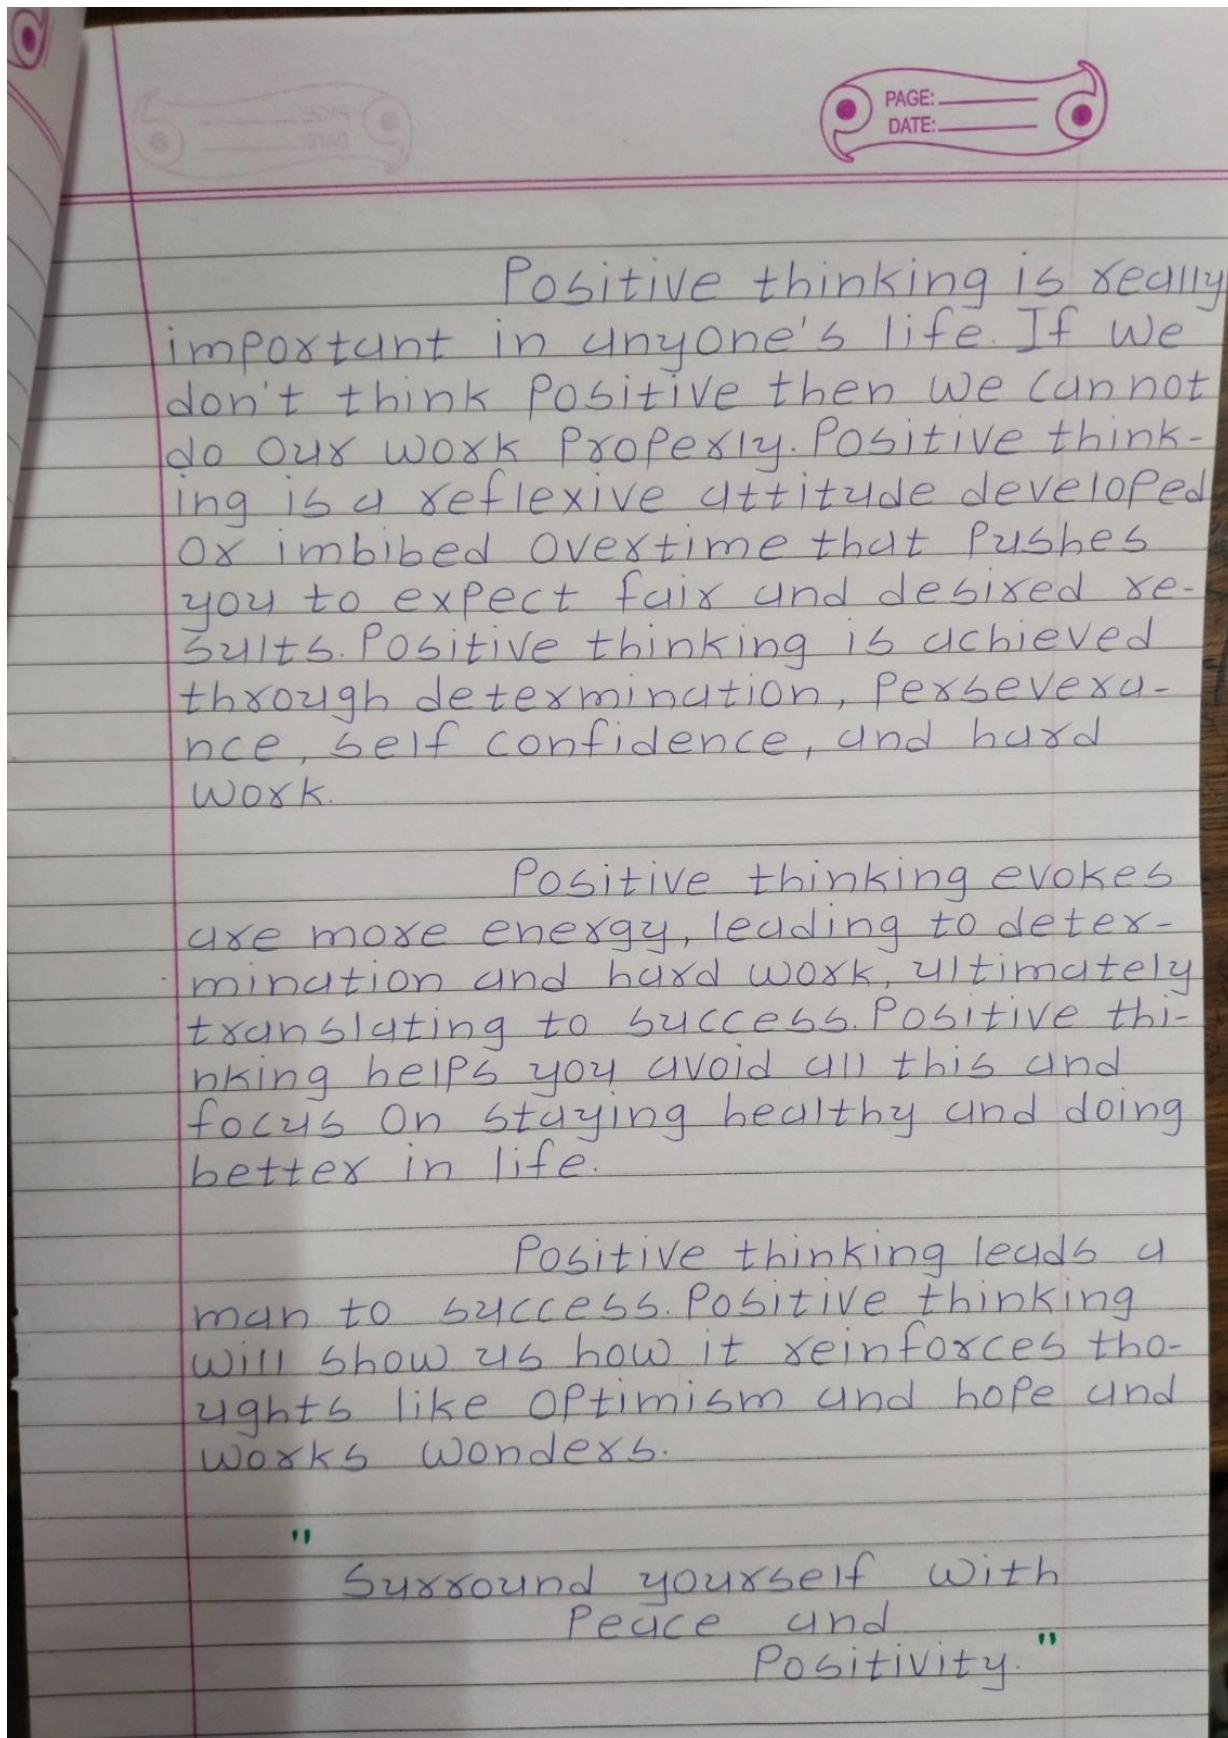 PAGE:
DATE:
Positive thinking is really
important in anyone's life. If we
don't think positive then we cannot
do our work properly. Positive think-
ing is a reflexive attitude developed
or imbibed overtime that pushes
you to expect fair and desired re-
sults. Positive thinking is achieved
through determination, persevera-
nce, self confidence, and hard
work.
Positive thinking evokes
are more energy, leading to deter-
mination and hard work, ultimately
translating to success. Positive thi-
nking helps you avoid all this and
focus on staying healthy and doing
better in life.
Positive thinking leads a
man to success. Positive thinking
will show us how it reinforces tho-
ughts like optimism and hope and
works wonders.
"
Surround yourself with
Peace and
Positivity."